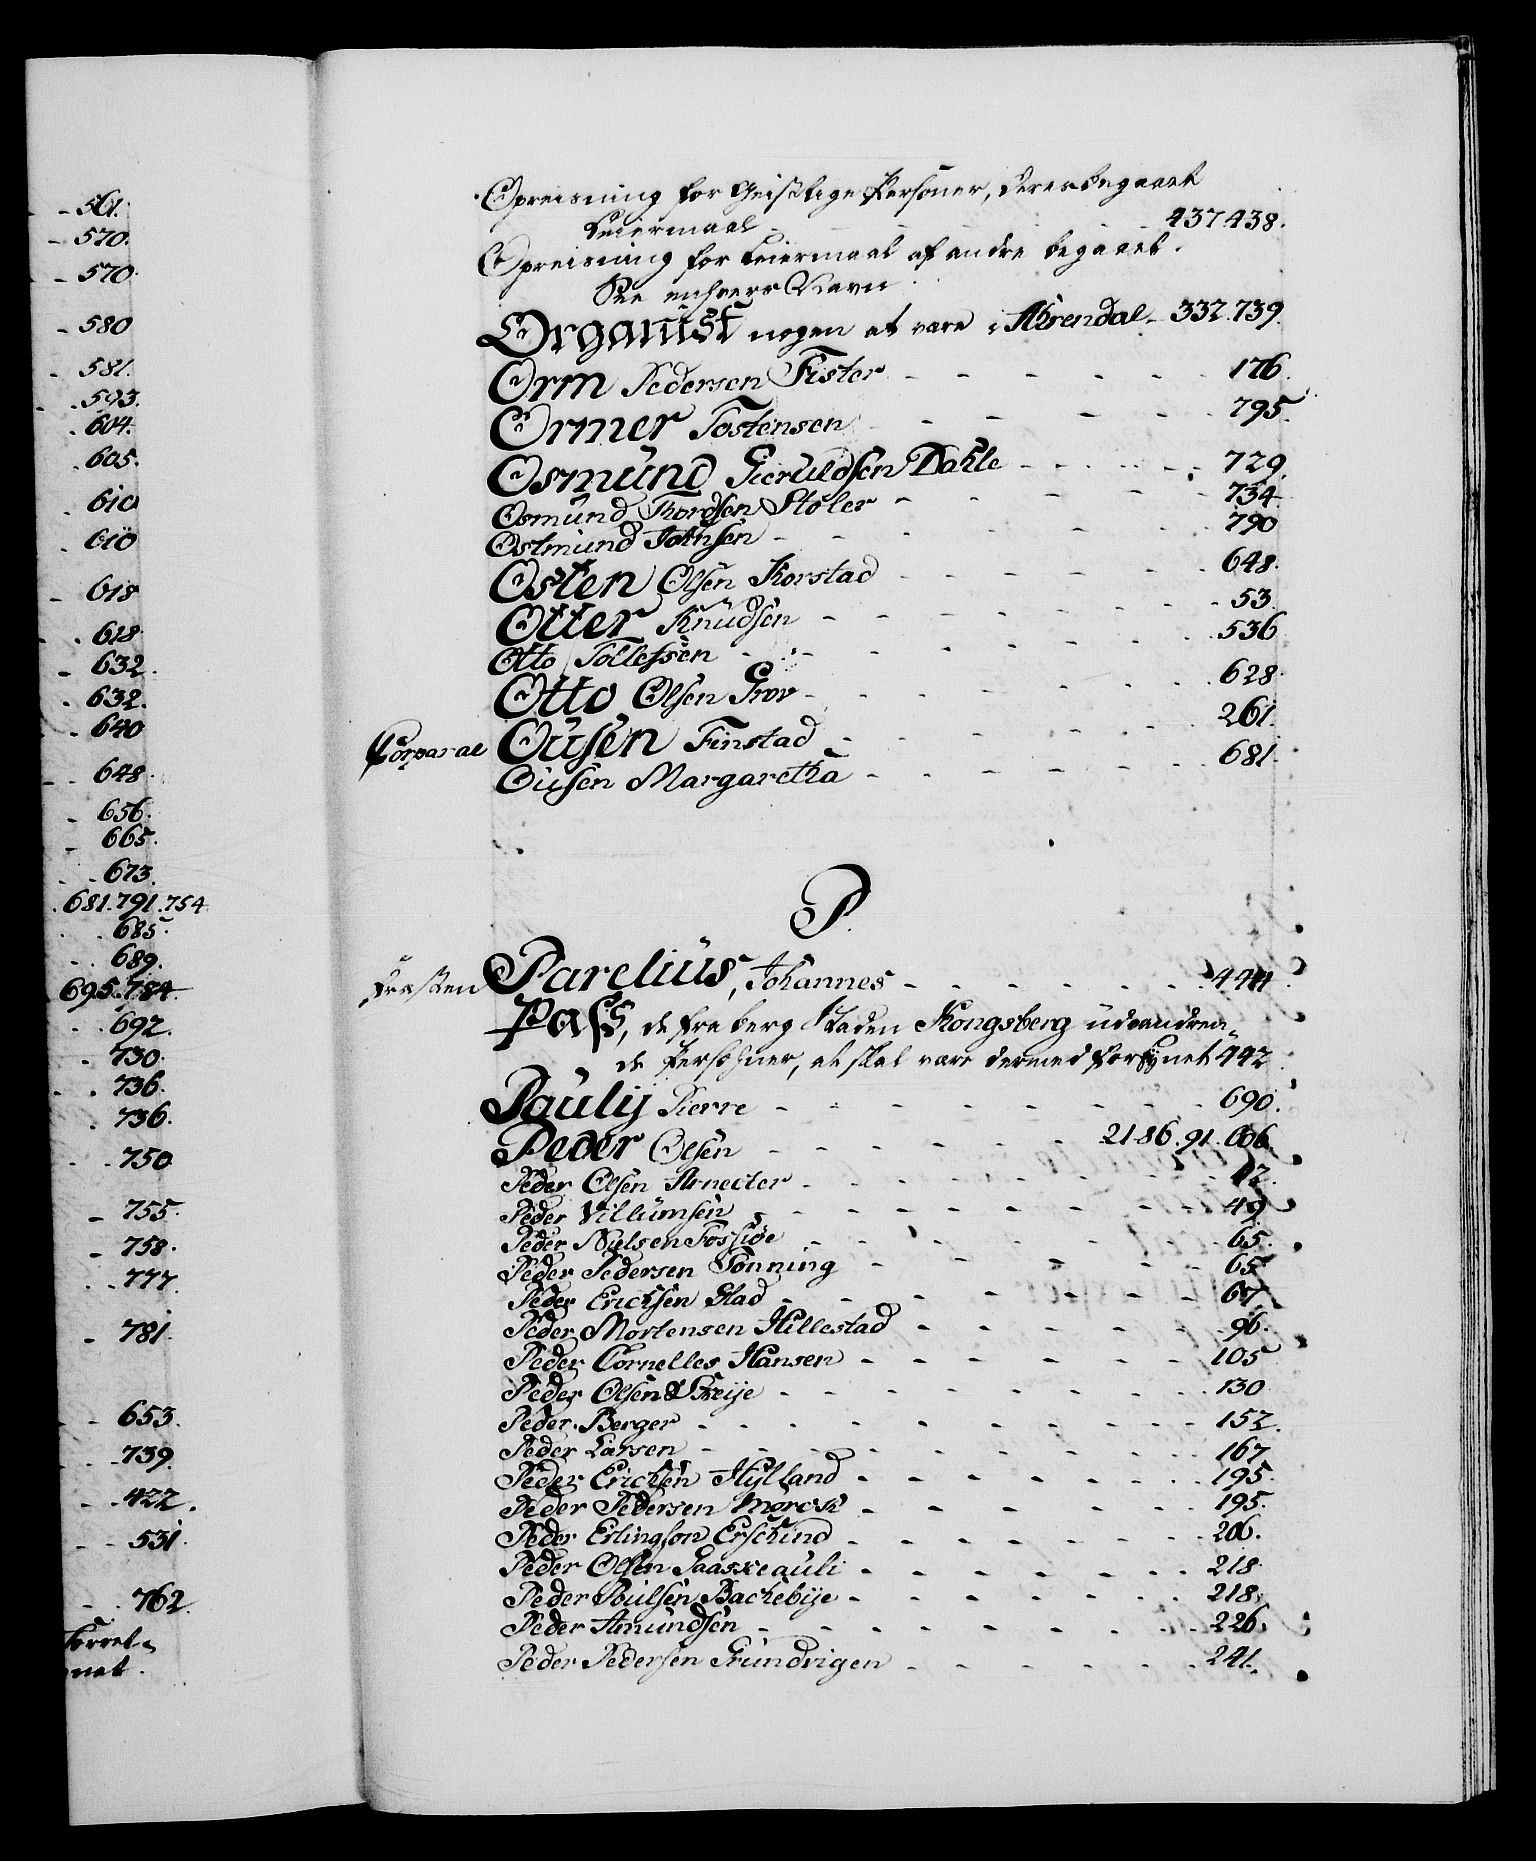 561.
570.
570.
580
581.
593.
604.
605.
610
610
618
618.
632.
632.
640
648.
656.
665.
673.
681.791.754
685.
689.
695.784.
692.
730.
736.
736.
750
755.
758.
777.
781.
653.
739.
422.
531.
762.
Forret-
net.
Opreisning for Geistlige Personer, deres begaaet
Leiermaal - 437.438.
Opreisning for Leiermaal af andre begaaet.
See enhvers Navn
Organist nogen at være i Ahrendal - 332.739.
Orm Pedersen Fister - - - - - - 176.
Ormer Tostensen - - - - - 795.
Osmund Gieruldsen Dahle - - - - - 729.
Osmund Thordsen Stöler - - - - - 734.
Ostmund Joensen - - - - - 790
Osten Olsen Korstad - - - - - 648.
Otter Knudsen - - - - - - 53.
Otto Tollefssen - - - - - - 536
Otto Olsen Grov - - - - - - 628.
Corporal Ousen Finstad - - - - - - 261.
Ousen Margaretha - - - - - - 681.
P.
Præsten Parelius, Johannes - - - - - - 444.
Pass, de fra berg Staden Kongsberg udvandren-
de Personer, at skal være dermed forsynet 442
Pauly Pierre - - - - - - - 690.
Peder Olsen - - - - - - 21.86.91.606.
Peder Olsen Arnecter - - - - - - - 42.
Peder Villumsen - - - - - - - 49
Peder Nielsen Fossiøe - - - - - - - 65.
Peder Pedersen Tønning - - - - - 65
Peder Ericksen Glad - - - - - - - 67
Peder Mortensen Hillestad - - - - - - 96.
Peder Cornelles Hansen - - - - - - 105
Peder Olsen Streije - - - - - - - 130
Peder Berger - - - - - - - - 152.
Peder Larsen - - - - - - - - 167
Peder Ericksen Hylland - - - - - - 195.
Peder Pedersen Morck - - - - - - 195.
Peder Erlingson Erschind - - - - - - 206.
Peder Olsen - - - - - - 218
Peder Poulsen Backebije - - - - - - 218.
Peder Amundsen - - - - - - - 226.
Peder Pedersen Grundvigen - - - - - 241.